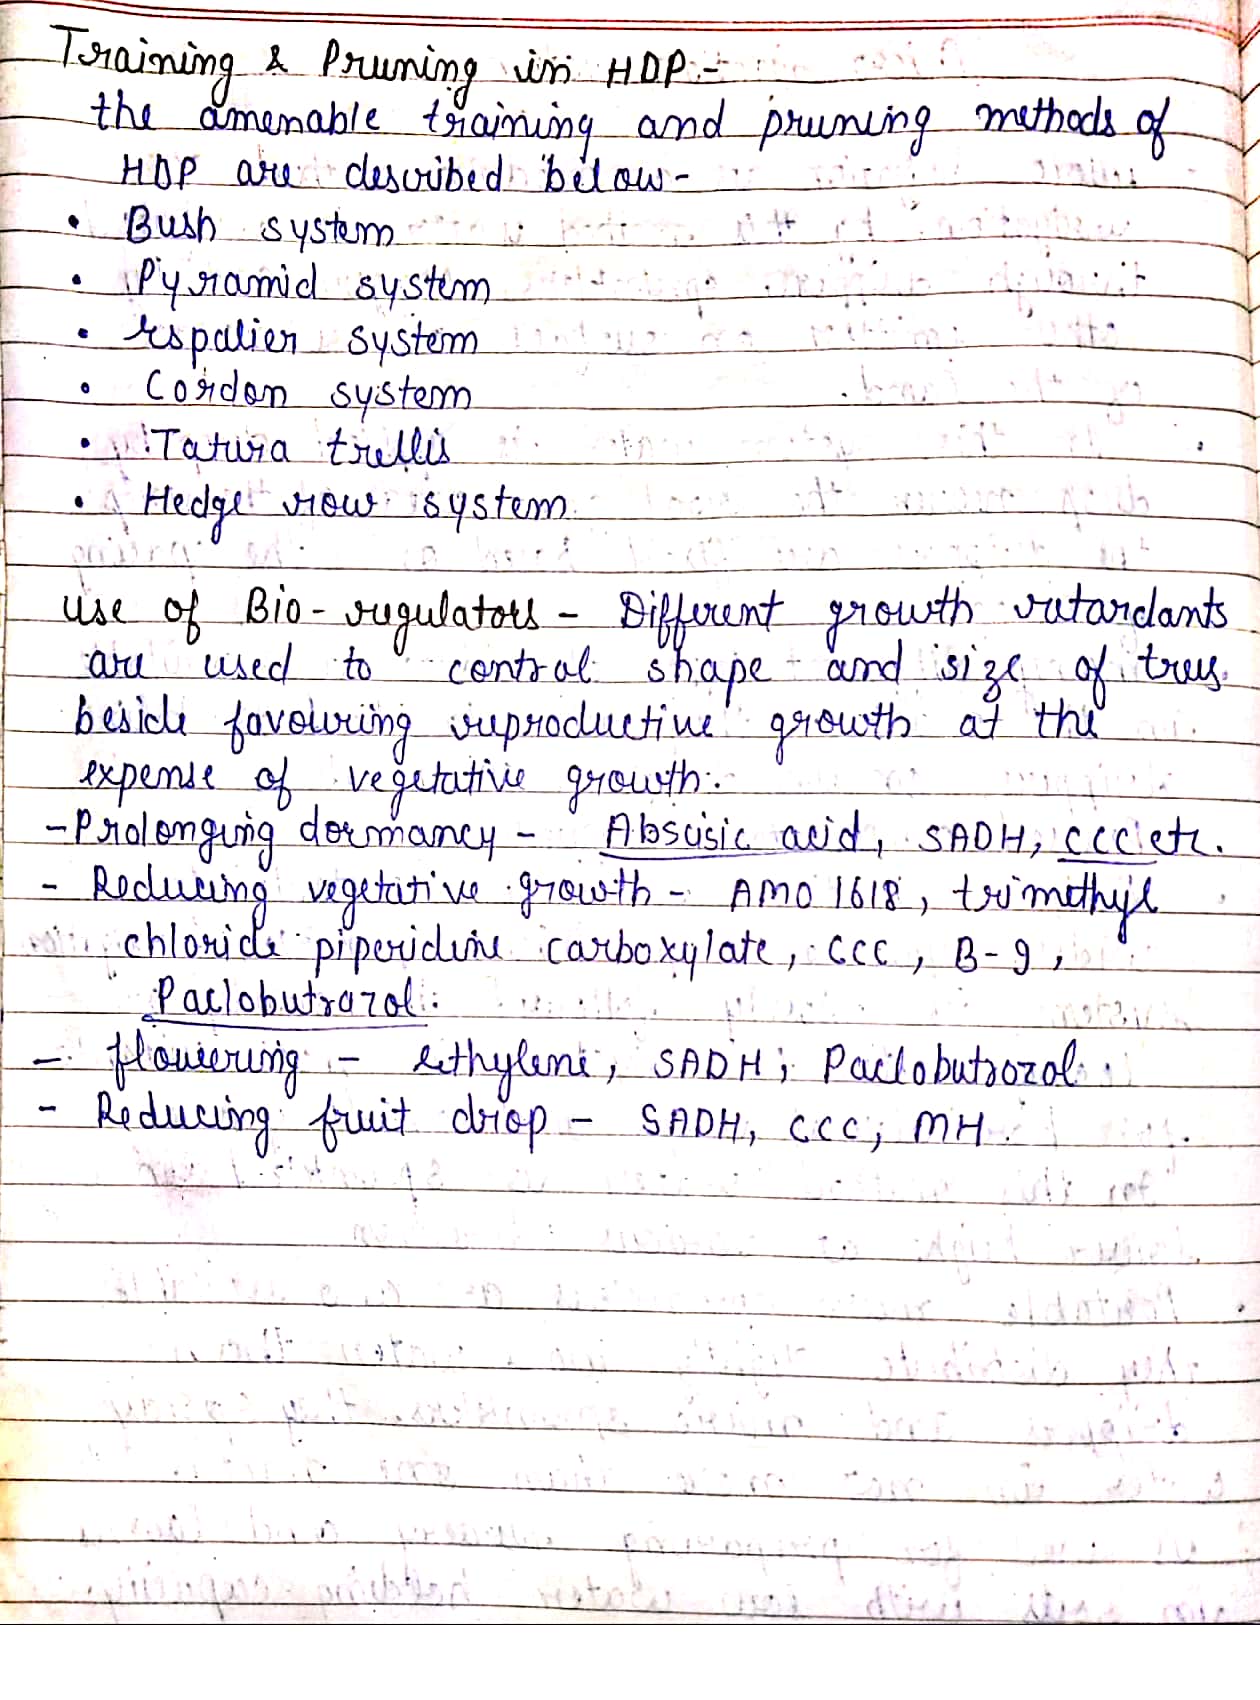 Training & Pruning in HDP:-
the amenable training and pruning methods of
HDP are described below-
• Bush system
• Pyramid system
• Espalier system
• Cordon system
• Tatura trellis
• Hedge row system
Use of Bio-regulators - Different growth retardants
are used to control shape and size of trees
beside favouring reproductive growth at the
expense of vegetative growth.
- Prolonging dormancy - Abscisic acid, SADH, CCC etc.
- Reducing vegetative growth - AMO 1618, trimethyl
chloride piperidine carboxylate, CCC, B-9,
Paclobutrazol.
- flowering - Ethylene, SADH, Paclobutrozol.
- Reducing fruit drop - SADH, CCC, MH.